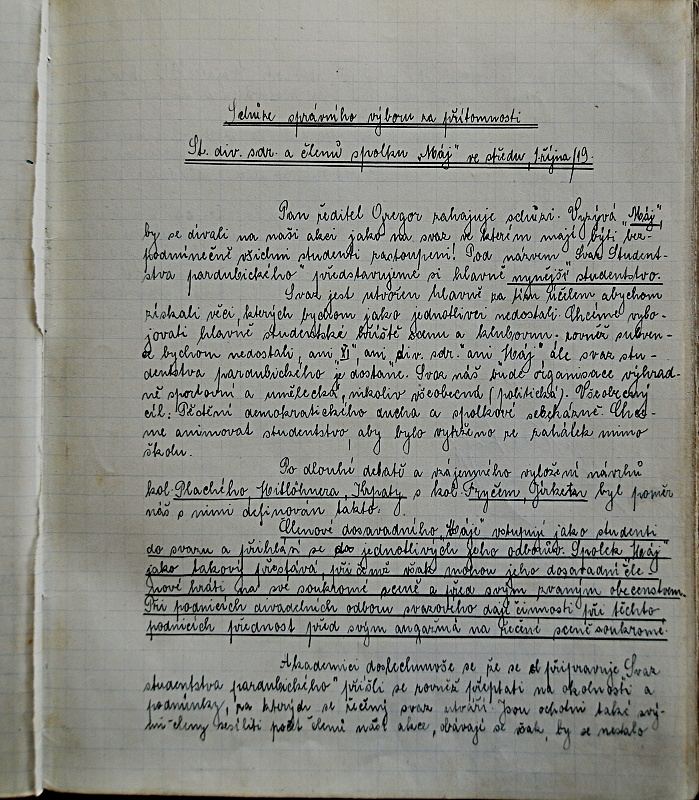 Schůze správního výboru za přítomnosti
St. div. sdr. a členů spolku „Máj" ve středu, 1. října /19.
Pan ředitel Gregor zahajuje schůzi. Vyzývá „Máj",
by se dívali na naši akci jako na svaz ve kterém mají býti bez-
podmínečně všichni studenti zastoupeni! Pod názvem „Svaz Student-
stva pardubického" představujeme si hlavně nynější studentstvo.
Svaz jest utvořen hlavně za tím účelem abychom
získali věci, kterých bychom jako jednotlivci nedostali. Chceme vybo-
jovati hlavně studentské hřiště scenu a klubovnu. rovněž subven-
ce bychom nedostali, ani ani „div. sdr." ani „Máj" ale svaz stu-
dentstva pardubického" je dostane. Svaz náš bude organisace výhrad-
ně sportovní a umělecká, nikoliv všeobecná (politická). Všeobecný
cíl: Pěstění demokratického ducha a spolkové sebekázně. Chce-
me animovat studentstvo, aby bylo vytrženo ze zahálek mimo
školu.
Po dlouhé debatě a vzájemného vyložení návrhů
kol. Plachého, Mitlöhnera, Krpaty s kol. Fryčem, byl poměr
náš s nimi definován takto:
Členové dosavadního „Máje" vstupují jako studenti
do svazu a přihlásí se do jednotlivých jeho odborů. Spolek „Máj"
jako takový přestává, při čemž však mohou jeho dosavadní čle-
nové hráti na své soukromé sceně a před svým zvaným obecenstvem.
Při podnicích divadelních odboru svazového dají činnosti při těchto
podnicích přednost před svým angažmá na řečené sceně soukromé.
Akademici doslechnuvše se že se připravuje „Svaz
studentstva pardubického" přišli se rovněž přeptati na okolnosti a
podmínky, za kterých se řečený svaz utváří. Jsou ochotni také svý-
mi členy sesíliti počet členů naší akce, obávají se však, by se nestalo